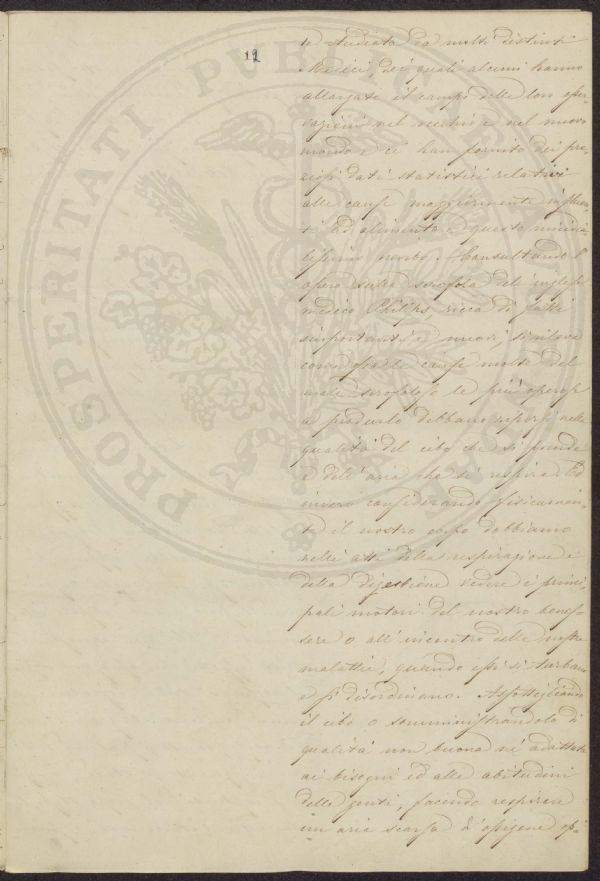 12
te studiata da molti distinti
Medici, dei quali alcuni hanno
allargato il campo delle loro osser-
vazioni nel vecchio e nel nuovo
mondo e ci han fornito dei pre-
ziosi dati statistici relativi
alle cause maggiormente influen-
ti ad alimentare questo micidia-
lissimo morbo. Consultando l'
opera sulla scrofola del inglese
medico Philips, ricca di fatti
importanti e nuovi, si rileva
come fra le cause molte del
male scrofoloso le più operose
a produrlo debbano riporsi nelle
qualità del cibo che si prende
e dell'aria che si respira. Ed
invero considerando fisicamen-
te il nostro corpo dobbiamo
nelli atti della respirazione e
della digestione vedere i princi-
pali motori del nostro benes-
sere o all'incontro delle nostre
malattie, quando essi si turbano
e si disordinano. Assottigliando
il cibo o somministrandolo di
qualità non buona nè adattata
ai bisogni ed alle abitudini
delle genti, facendo respirare
un aria scarsa d'ossigene os-
PROSPERITATI PUBLICAE